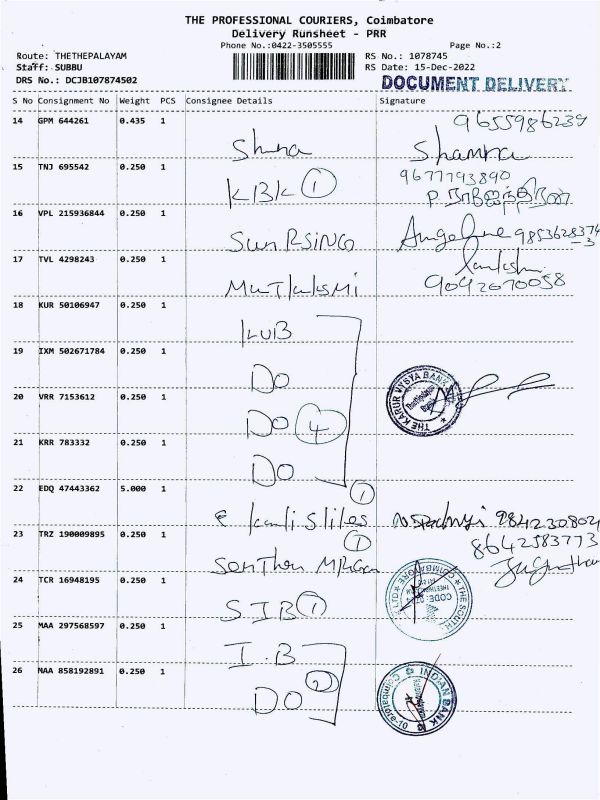 THE PROFESSIONAL COURIERS, Coimbatore
Delivery Runsheet - PRR
Phone No.:0422-3505555 Page No.:2
Route: THETHEPALAYAM RS No.: 1078745
Staff: SUBBU RS Date: 15-Dec-2022
DRS No.: DCJB107874502 DOCUMENT DELIVERY
S No Consignment No Weight PCS Consignee Details Signature
14 GPM 644261 0.435 1 9655986234
Shamra
15 TNJ 695542 0.250 1 9677793890
KBK 1
16 VPL 215936844 0.250 1
Sun RSiNG Angeline
17 TVL 4298243 0.250 1
9042670058
18 KUR 50106947 0.250 1
KVB
19 IXM 502671784 0.250 1
DO
20 VRR 7153612 0.250 1
DO 4
THE KARUR VYSYA BANK
21 KRR 783332 0.250 1
DO
22 EDQ 47443362 5.000 1
1
23 TRZ 190009895 0.250 1 8642583773
1
24 TCR 16948195 0.250 1
S.I.B 1
THE SOUTH
COIMBATORE
25 MAA 297568597 0.250 1
I.B
26 MAA 858192891 0.250 1
DO 2
INDIAN BANK